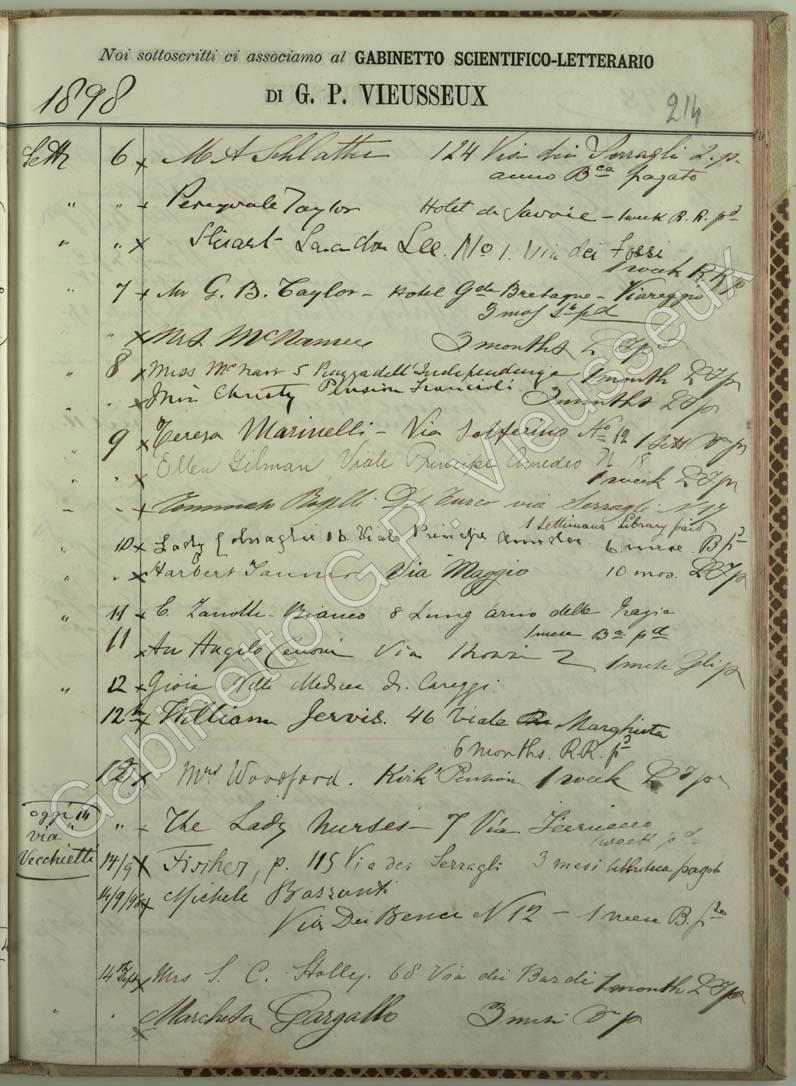 Noi sottoscritti ci associamo al GABINETTO SCIENTIFICO-LETTERARIO
DI G. P. VIEUSSEUX
1898
214
Sett 6 x M A Schlatter 124 Via dei Serragli 2. p.
anno Bca pagato
" " x Percyvale Taylor Hotel de Savoie - 1 week R. R. pd
" " x Stuart Landon Lee. No 1. Via dei Fossi
1 week R. R. p
7 x Mr G. B. Taylor - Hotel Gde Bretagne - Viareggio
3 mos pd
" x Mrs McNamee 3 months
8 x Miss McNarr 5 Piazza dell'Independenza 1 month
" x Miss Christy Pension Francioli 3 months
9 x Teresa Marinelli - Via Solferino No 12 1 Sett
" x Ellen Gilman Viale Principe Amedeo N. 18
1 week
" - x Tommaso Del Turco via Serragli N 17
1 Settimana Library paid
" 10 x Lady 16 Viale Principe Amedeo 6 mese B pd
" " x Harbert Via Maggio 10 mos.
" 11 x E. Zanotti-Bianco 8 Lung'arno delle Grazie
1 mese Ba pd
11 x Angelo Via 2 1 mese
" 12 x Gioia Villa Medicea di Careggi
12 x William Jervis. 46 Viale Margherita
6 months. R. R. pd
12 x Mrs Woodford. Kirk' Pension 1 week
oggi 14
via
Vecchietti
" x The Lady Nurses - 7 Via Ferruccio
1 week pd
14/9 x Fischer, p. 115 Via dei Serragli 3 mesi biblioteca pagato
14/9/98 x Michele Bazzanti
Via Dei Benci N 12 - 1 mese B.
14th Sept x Mrs S. C. Holley. 68 Via dei Bardi 1 month
" " x Marchesa Gargallo 3 mesi
Gabinetto G.P. Vieusseux